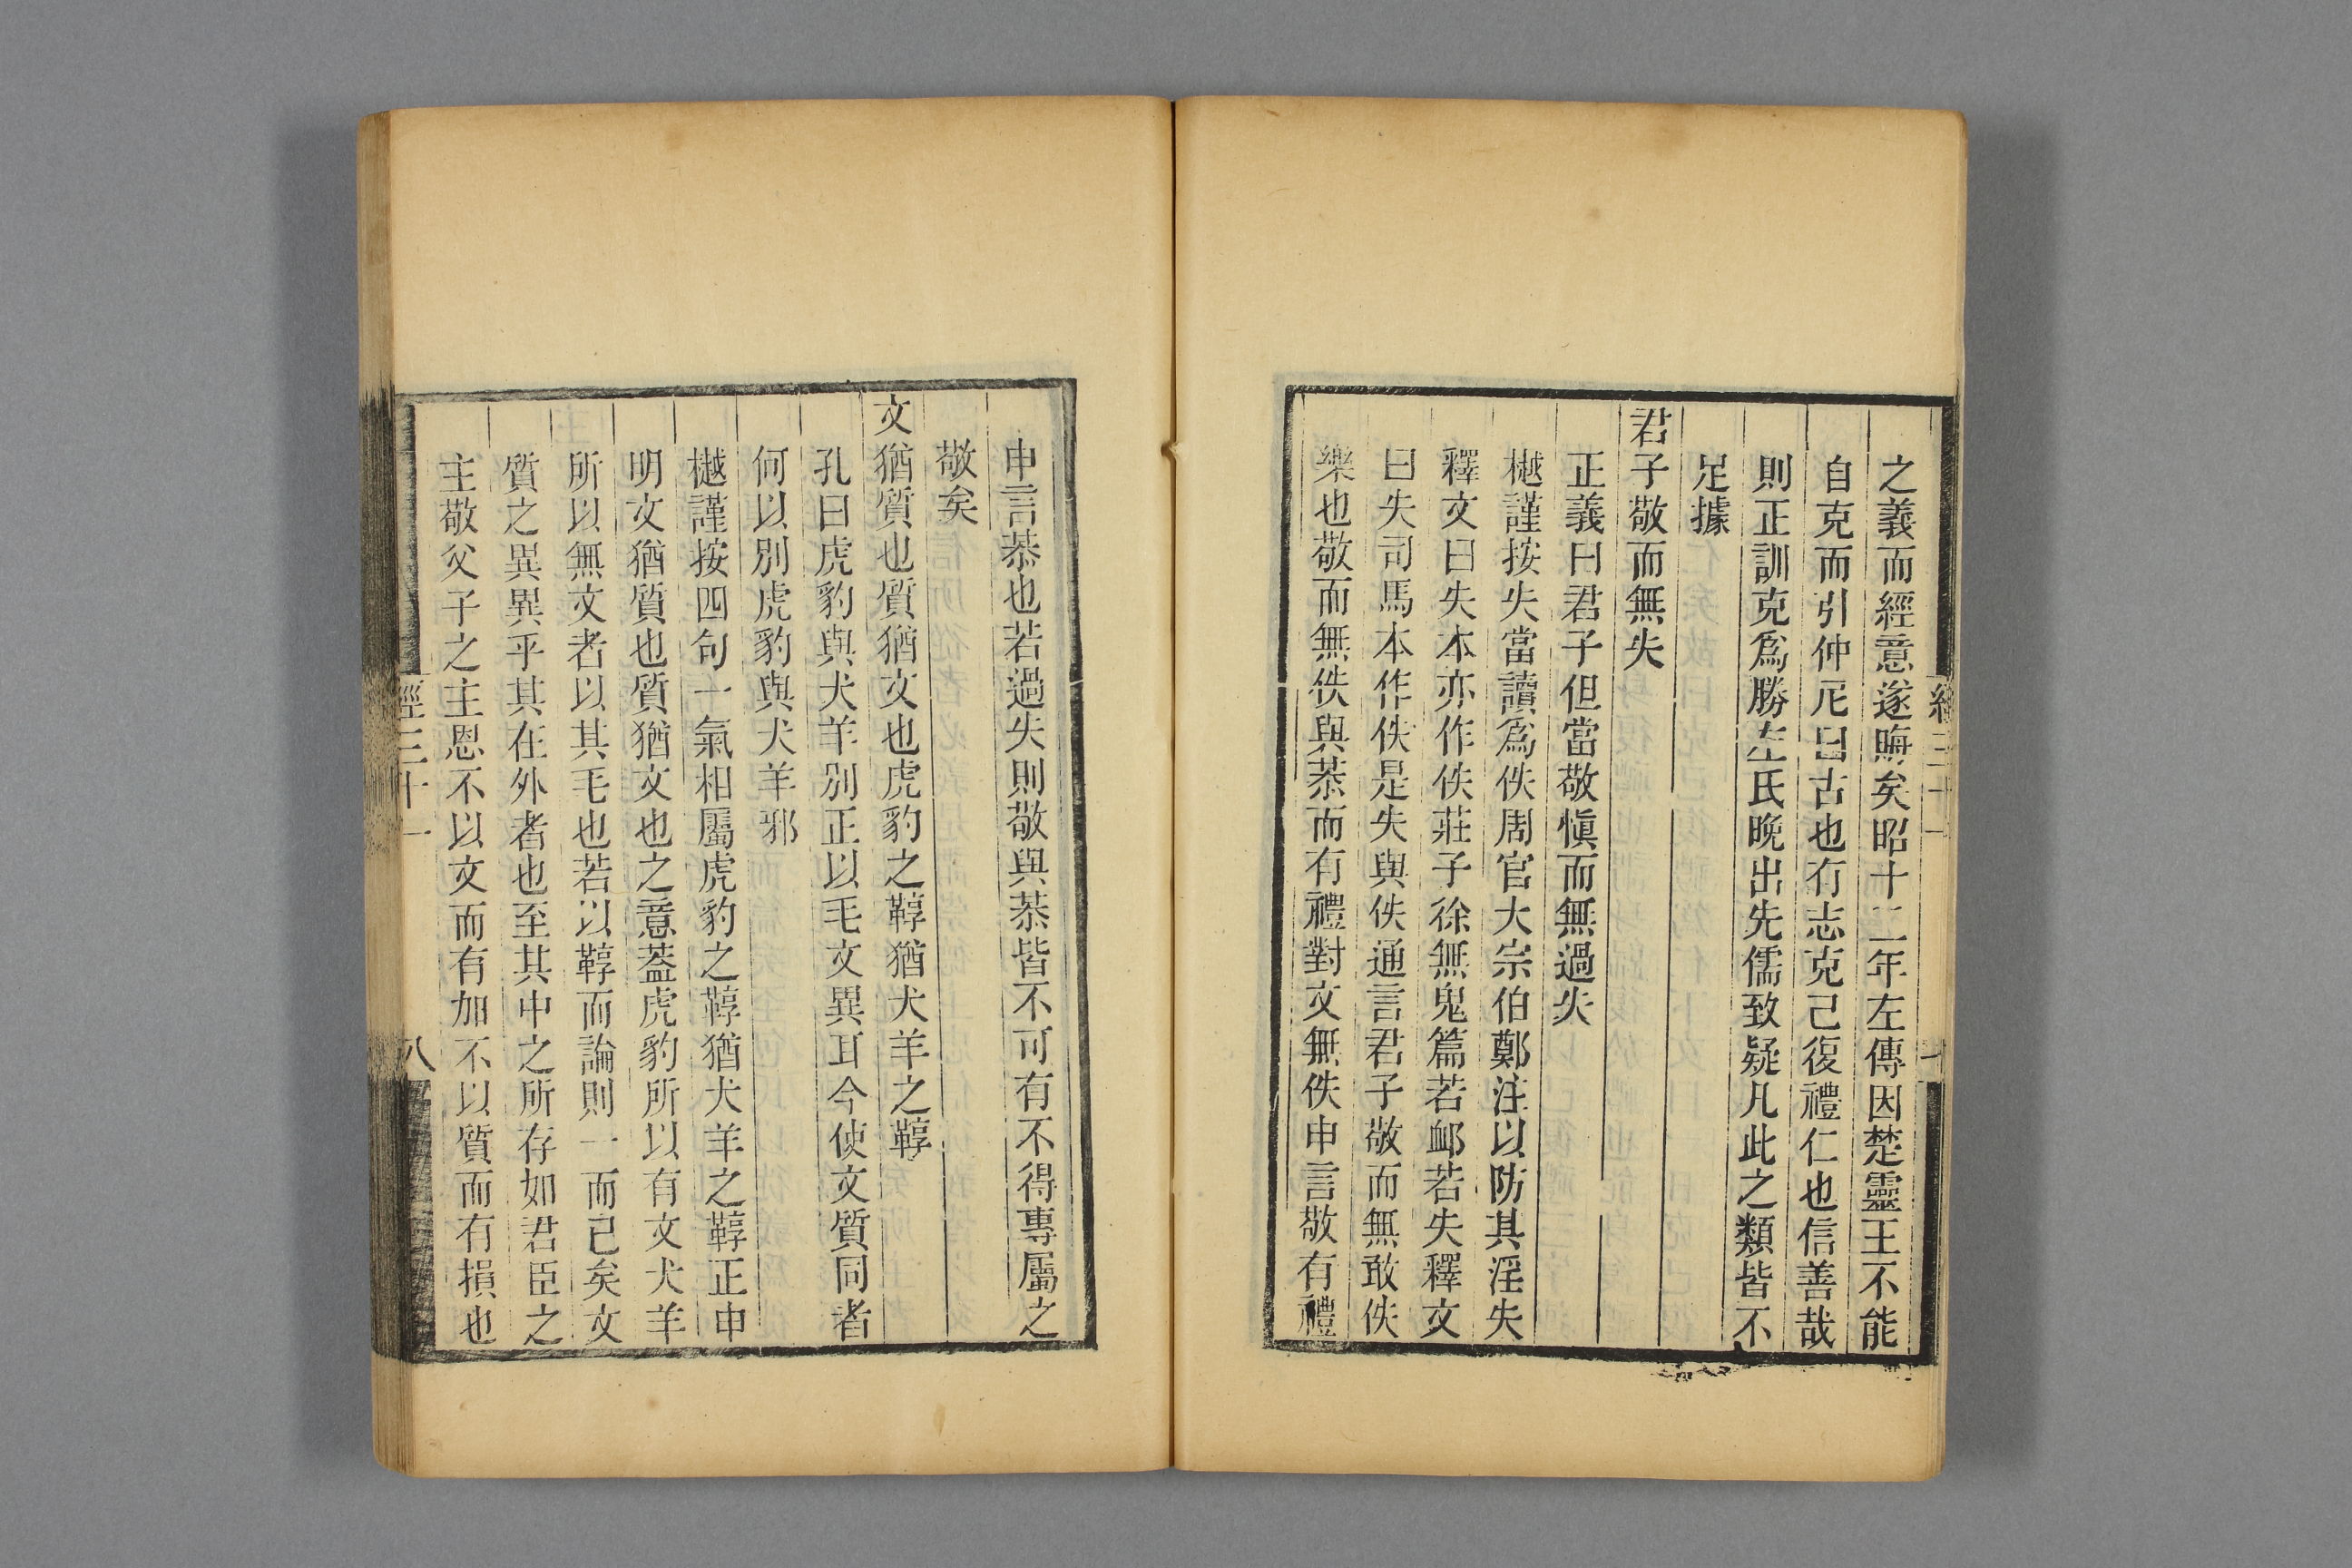 之義而經意遂晦矣昭十二年左傳因楚靈王不能
自克而引仲尼曰古也有志克己復禮仁也信善哉
則正訓克爲勝左氏晚出先儒致疑凡此之類皆不
足據
君子敬而無失
正義曰君子但當敬愼而無過失
樾謹按失當讀爲佚周官大宗伯鄭注以防其淫失
釋文曰失本亦作佚莊子徐無鬼篇若卹若失釋文
曰失司馬本作佚是失與佚通言君子敬而無敢佚
樂也敬而無佚與恭而有禮對文無佚申言敬有禮
申言恭也若過失則敬與恭皆不可有不得專屬之
敬矣
文猶質也質猶文也虎豹之鞟猶犬羊之鞟
孔曰虎豹與犬羊別正以毛文異耳今使文質同者
何以別虎豹與犬羊邪
樾謹按四句一氣相屬虎豹之鞟猶犬羊之鞟正申
明文猶質也質猶文也之意蓋虎豹所以有文犬羊
所以無文者以其毛也若以鞟而論則一而已矣文
質之異異乎其在外者也至其中之所存如君臣之
主敬父子之主恩不以文而有加不以質而有損也
經三十一
八